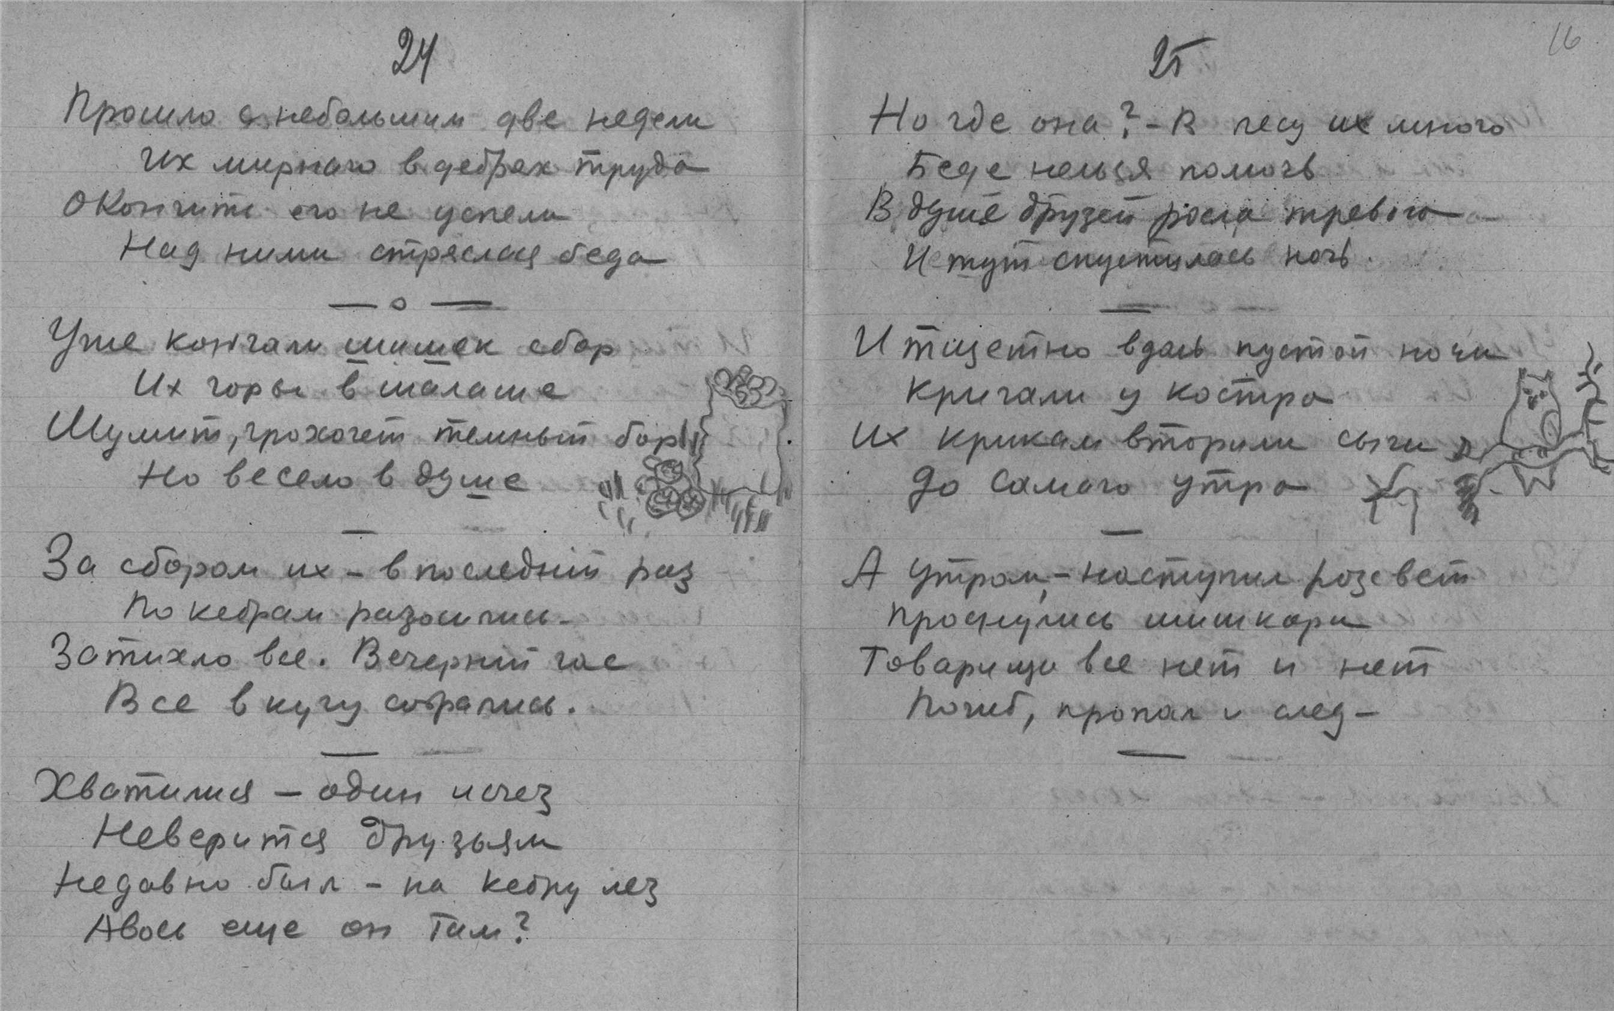 24
Прошло с небольшим две недели
Их мирного в дебрях труда
Окончить его не успели
Над ними стряслася беда
Уже кончали шишек сбор
Их горы в шалаше
Шумит, грохочет темный бор
Но весело в душе
За сбором их – в последний раз
По кебрам разошлись –
Затихло все. Вечерний час
Все в кучу собрались.
Хватился – один исчез
Неверится друзьям
Недавно был – на кебру лез
Авось еще он там?
25
16
Но где она? – В лесу их много
Беде нельзя помочь
В душе друзей росла тревога
И тут спустилась ночь.
И тщетно вдаль пустой ночи
Кричали у костра
Их крикам вторили сычи
До самого утра
А утром, – наступил розсвет
Проснулись шишкари
Товарища все нет и нет
Погиб, пропал и след –